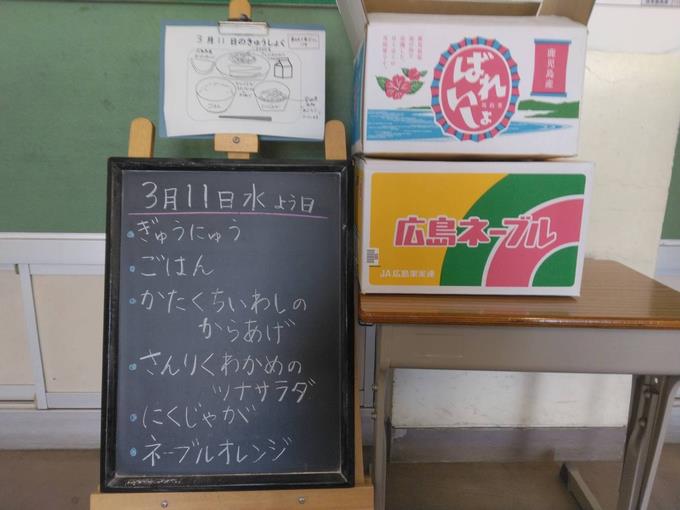 3月11日のきゅうしょく
ごはん
3月11日水よう日
ぎゅうにゅう
ごはん
かたくちいわしの
からあげ
さんりくわかめの
ツナサラダ
にくじゃが
ネーブルオレンジ
鹿児島産
ばれいしょ
広島ネーブル
JA広島果実連